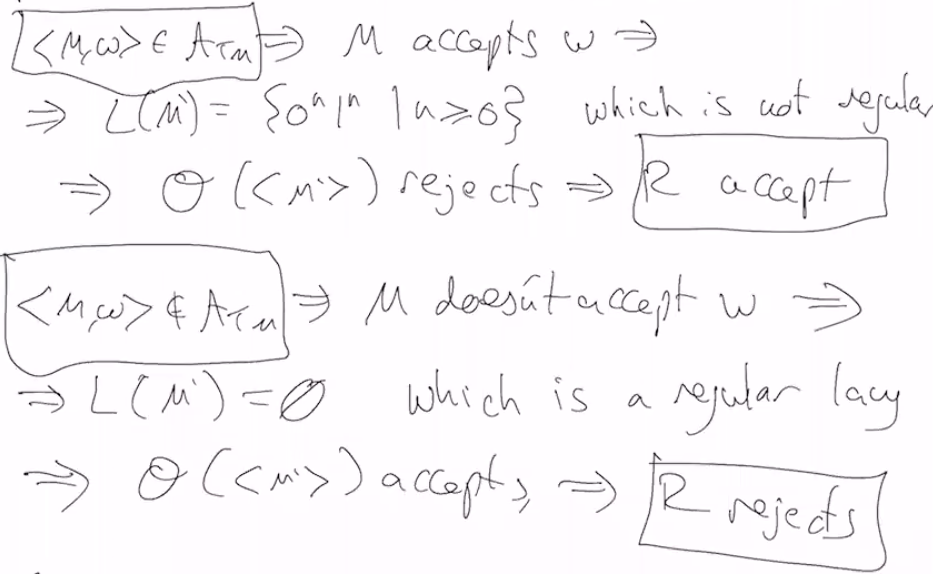 <M,w> ∈ A_TM ⇒ M accepts w ⇒
⇒ L(M') = {0ⁿ1ⁿ | n≥0} which is not regular
⇒ O(<M'>) rejects ⇒ R accept
<M,w> ∉ A_TM ⇒ M doesn't accept w ⇒
⇒ L(M') = ∅ which is a regular lang
⇒ O(<M'>) accepts, ⇒ R rejects